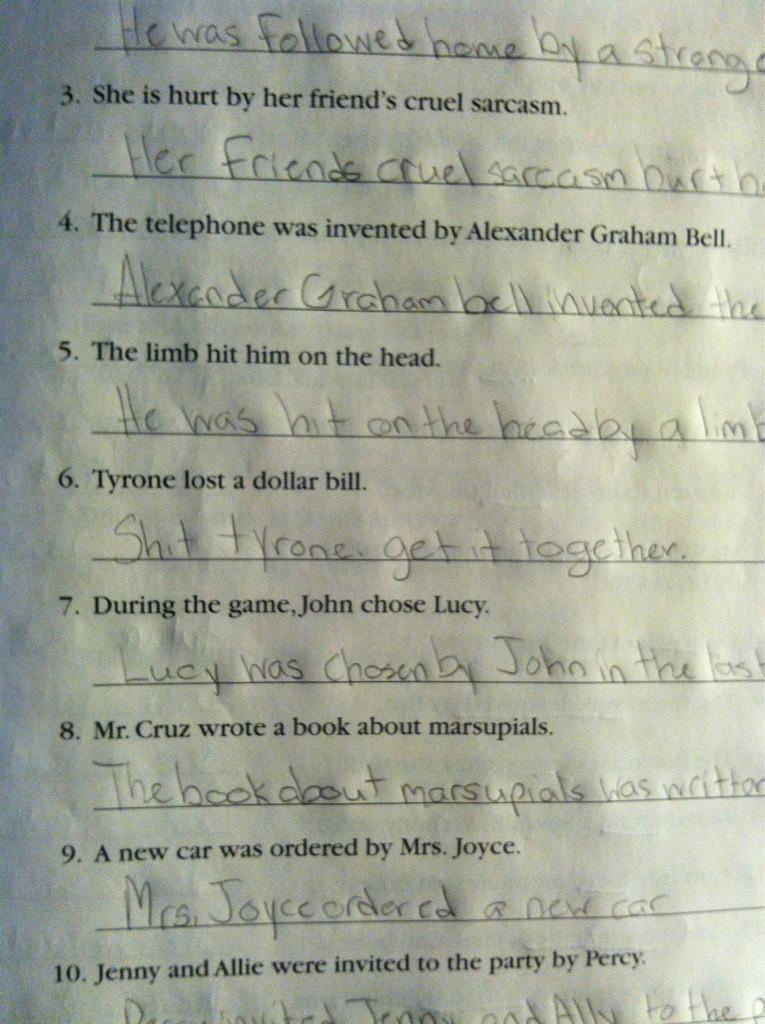 He was followed home by a strange
3. She is hurt by her friend's cruel sarcasm.
Her friends cruel sarcasm hurt h
4. The telephone was invented by Alexander Graham Bell.
Alexander Graham bell invented the
5. The limb hit him on the head.
He was hit on the head by a limb
6. Tyrone lost a dollar bill.
Shit tyrone. get it together.
7. During the game, John chose Lucy.
Lucy was chosen by John in the last
8. Mr. Cruz wrote a book about marsupials.
The book about marsupials was written
9. A new car was ordered by Mrs. Joyce.
Mrs. Joyce ordered a new car
10. Jenny and Allie were invited to the party by Percy.
Percy invited Jenny and Ally to the p